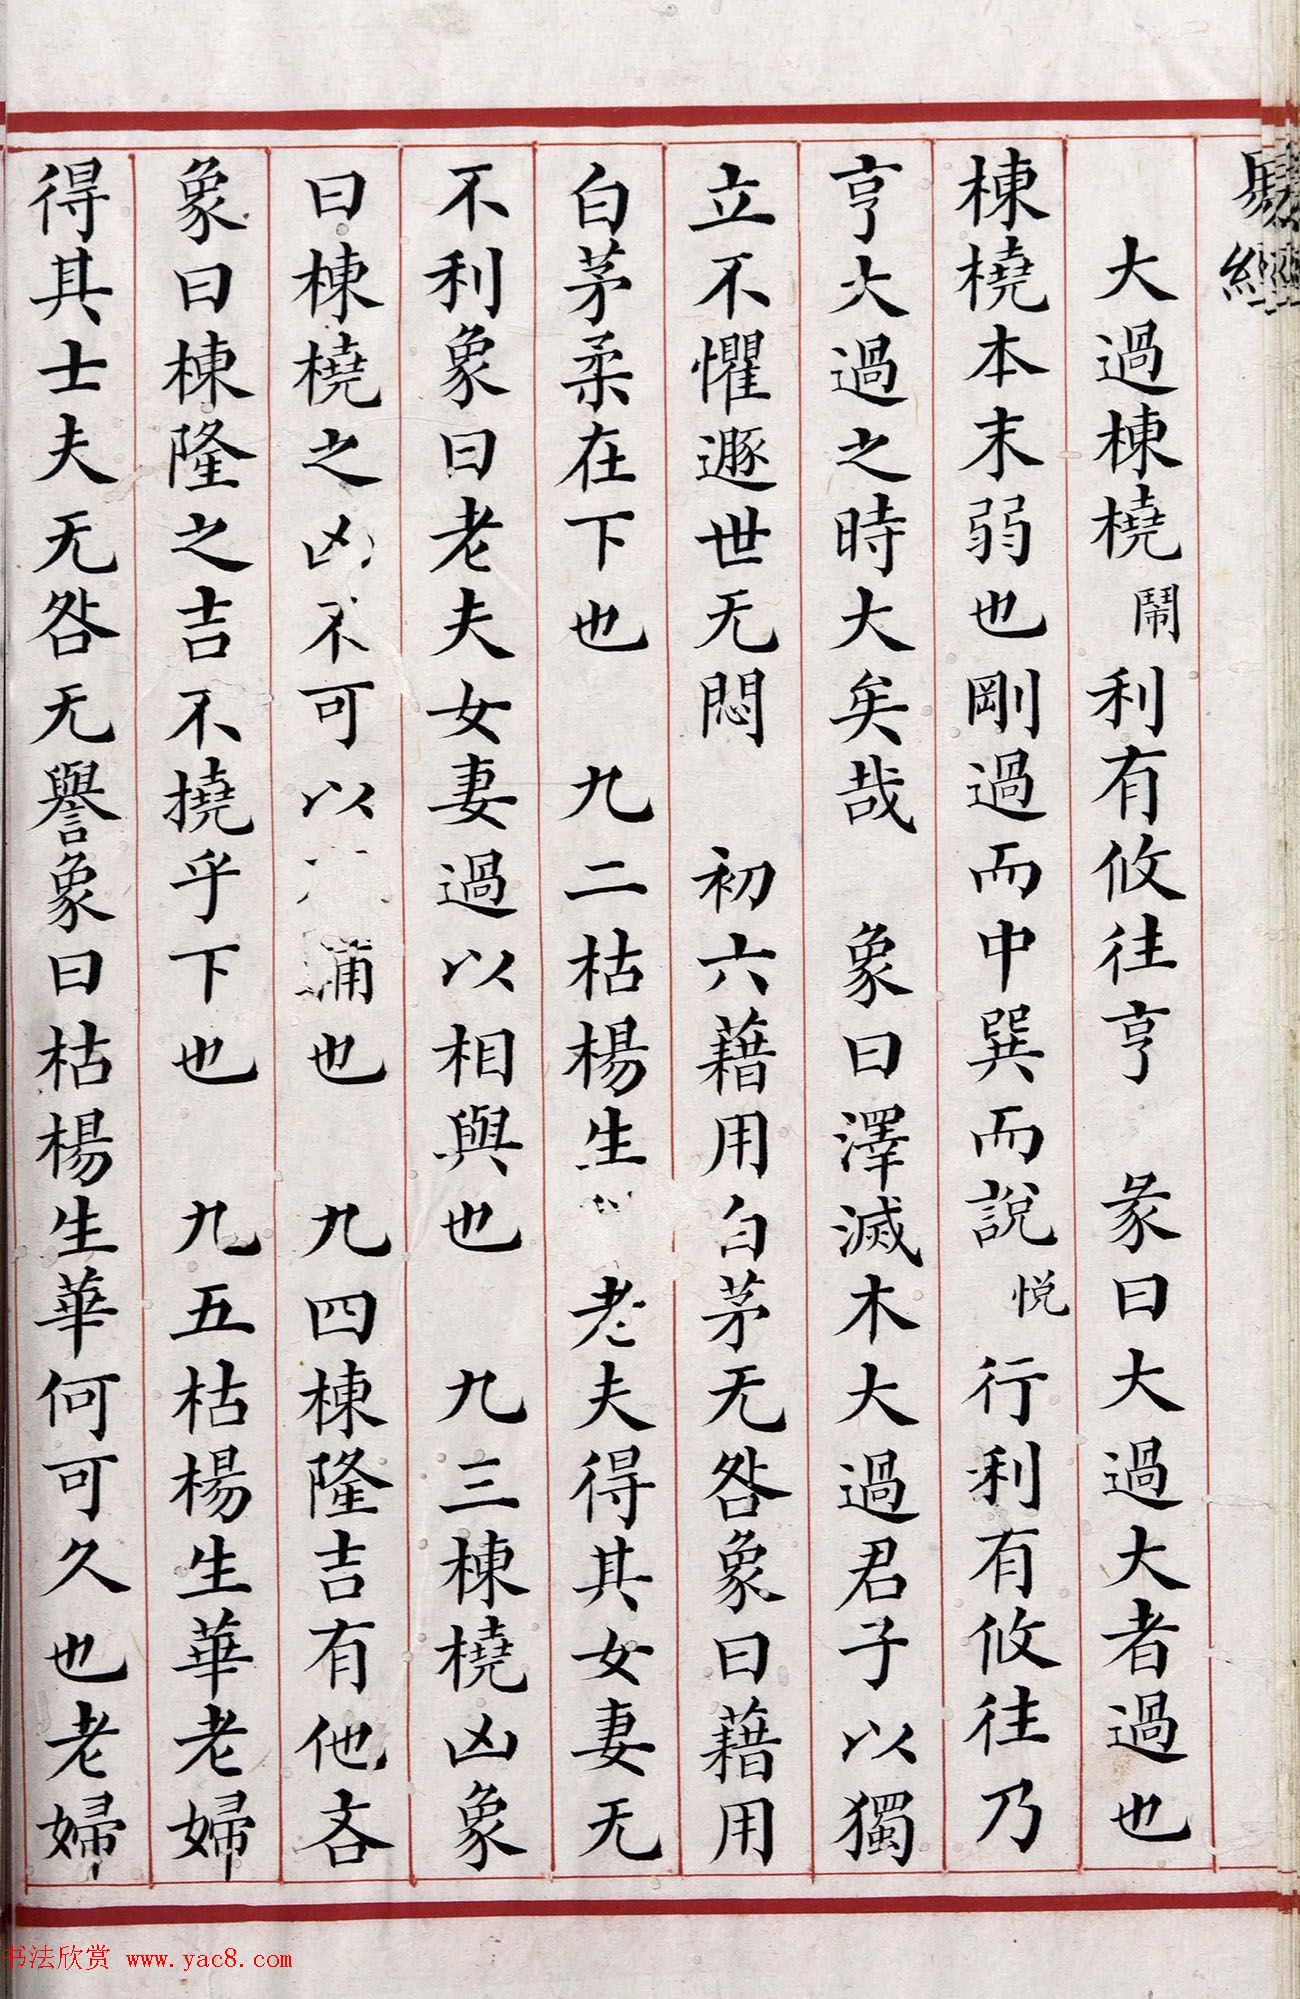 易經
大過棟橈鬧利有攸往亨　彖曰大過大者過也
棟橈本末弱也剛過而中巽而說悦行利有攸往乃
亨大過之時大矣哉　象曰澤滅木大過君子以獨
立不懼遯世无悶　初六藉用白茅无咎象曰藉用
白茅柔在下也　九二枯楊生　老夫得其女妻无
不利象曰老夫女妻過以相與也　九三棟橈凶象
曰棟橈之凶不可以輔也　九四棟隆吉有他吝
象曰棟隆之吉不撓乎下也　九五枯楊生華老婦
得其士夫无咎无譽象曰枯楊生華何可久也老婦
书法欣赏 www.yac8.com